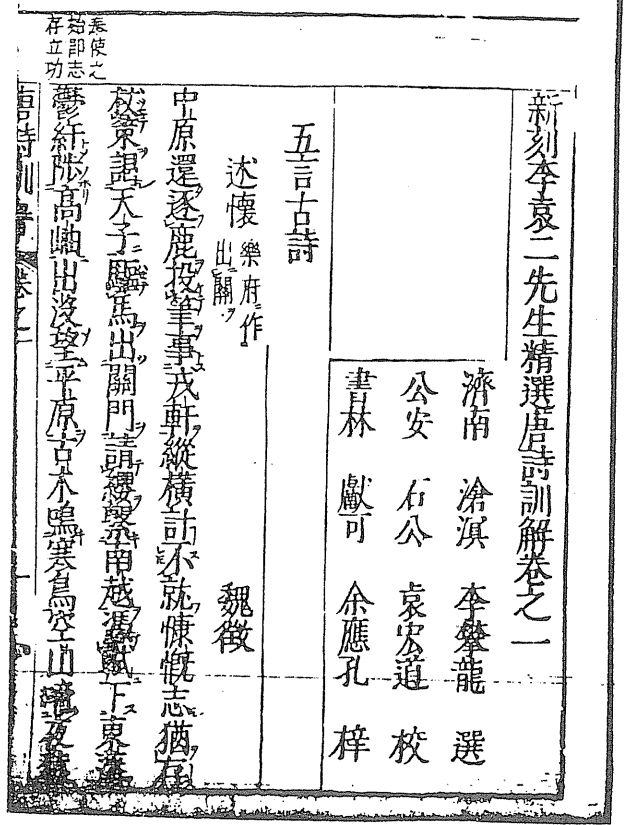 新刻李袁二先生精選唐詩訓解卷之一
濟南 滄溟 李攀龍 選
公安 石公 袁宏道 校
書林 獻可 余應孔 梓
五言古詩
述懷 樂府作出關
魏徵
中原還逐鹿投筆事戎軒縱橫計不就慷慨志猶存
杖策謁天子驅馬出關門請纓繫南越憑軾下東藩
鬱紆陟高岫出沒望平原古木鳴寒鳥空山啼夜猿
奉使之
始即志
存立功
唐詩訓解 卷之一